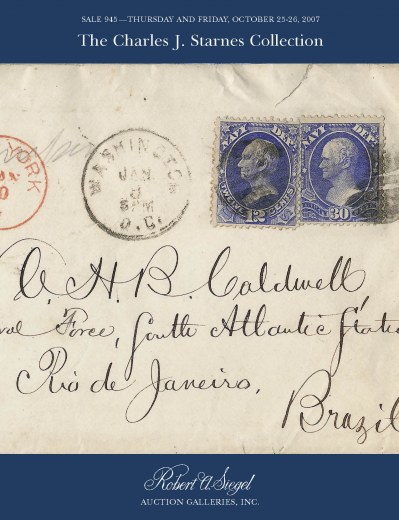 SALE 945—THURSDAY AND FRIDAY, OCTOBER 25-26, 2007
The Charles J. Starnes Collection
YORK
WASHINGTON
JAN.
5PM
D.C.
NAVY DEP.
TWELVE 12 CENTS
NAVY DEP.
30
O. H. B. Caldwell,
Force, South Atlantic Statio
Rio de Janeiro,
Brazil
Robert A. Siegel
AUCTION GALLERIES, INC.